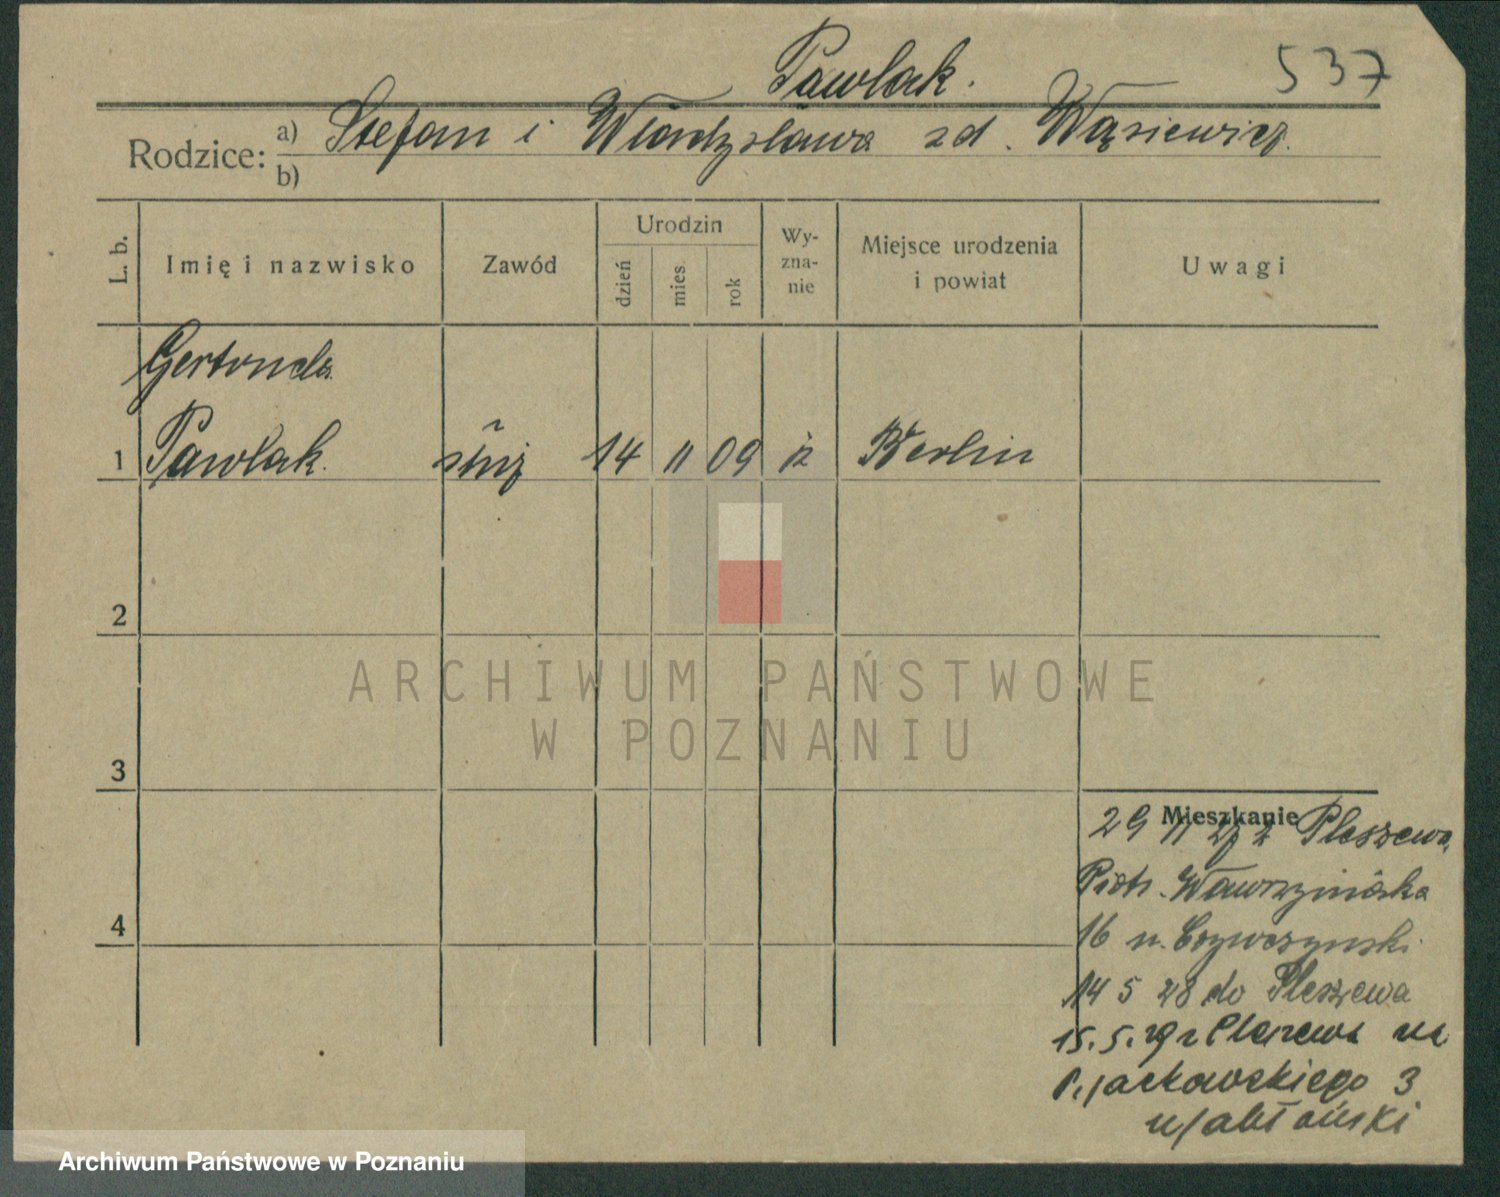 Pawlak.
537
Rodzice: a) Stefan i Władysława zd. Wąsiewicz.
b)
L. b.
Imię i nazwisko
Zawód
Urodzin
dzień
mies
rok
Wy-
zna-
nie
Miejsce urodzenia
i powiat
Uwagi
Gertruda
1 Pawlak. służ 14 11 09 rz Berlin
2
3
4
Mieszkanie
29 11 27 z Pleszewa,
Piotr. Wawrzyniaka
16 u.
14 5 28 do Pleszewa
15.5.29 z Pleszewa na
P. Jackowskiego 3
u Jabłoński
ARCHIWUM PAŃSTWOWE
W POZNANIU
Archiwum Państwowe w Poznaniu